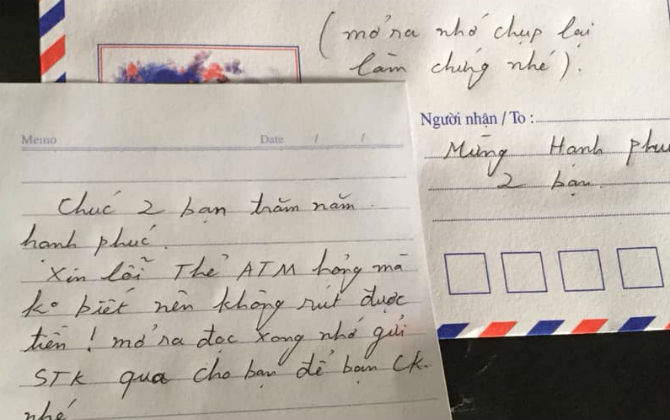 (mở ra nhớ chụp lại
làm chứng nhé).
Người nhận / To :
Mừng Hạnh phú
2 bạn
Memo Date / /
Chúc 2 bạn trăm năm
hạnh phúc.
Xin lỗi Thẻ ATM hỏng mà
ko biết nên không rút được
tiền ! mở ra đọc xong nhớ gửi
STK qua cho bạn để bạn CK.
nhé